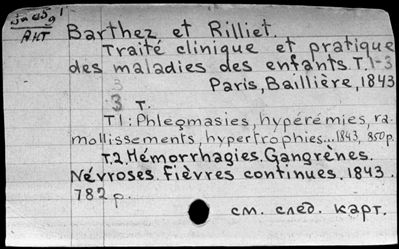 АКТ
Barthez et Rilliet.
Traité clinique et pratique
des maladies des enfants T.1-3
Paris, Baillière, 1843
3
3 т.
T1: Phlegmasies, hypérémies, ra-
mollissements, hypertrophies... 1843, 850p.
T.2. Hémorrhagies. Gangrènes.
Névroses. Fièvres continues. 1843.
782 p.
см. след. карт.